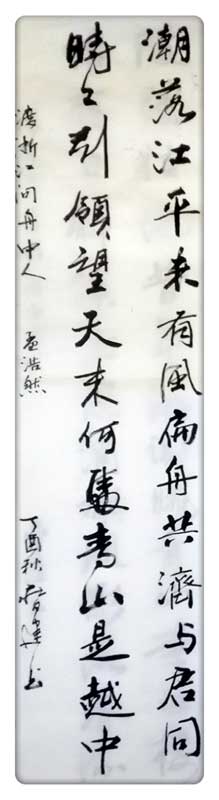 潮落江平未有風偏舟共濟与君同
時々引領望天末何處青山是越中
渡折江问舟中人 孟浩然 丁酉秋 书